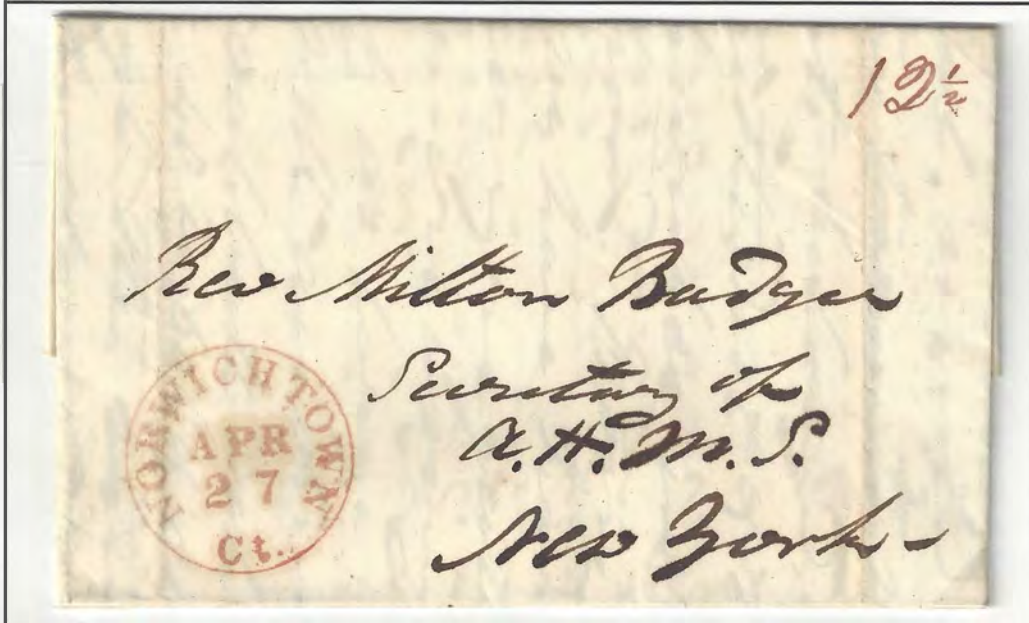 12½
Rev Milton Badger
Secretary of
A. H. M. S.
New York -
NORWICH TOWN
APR
27
Ct.